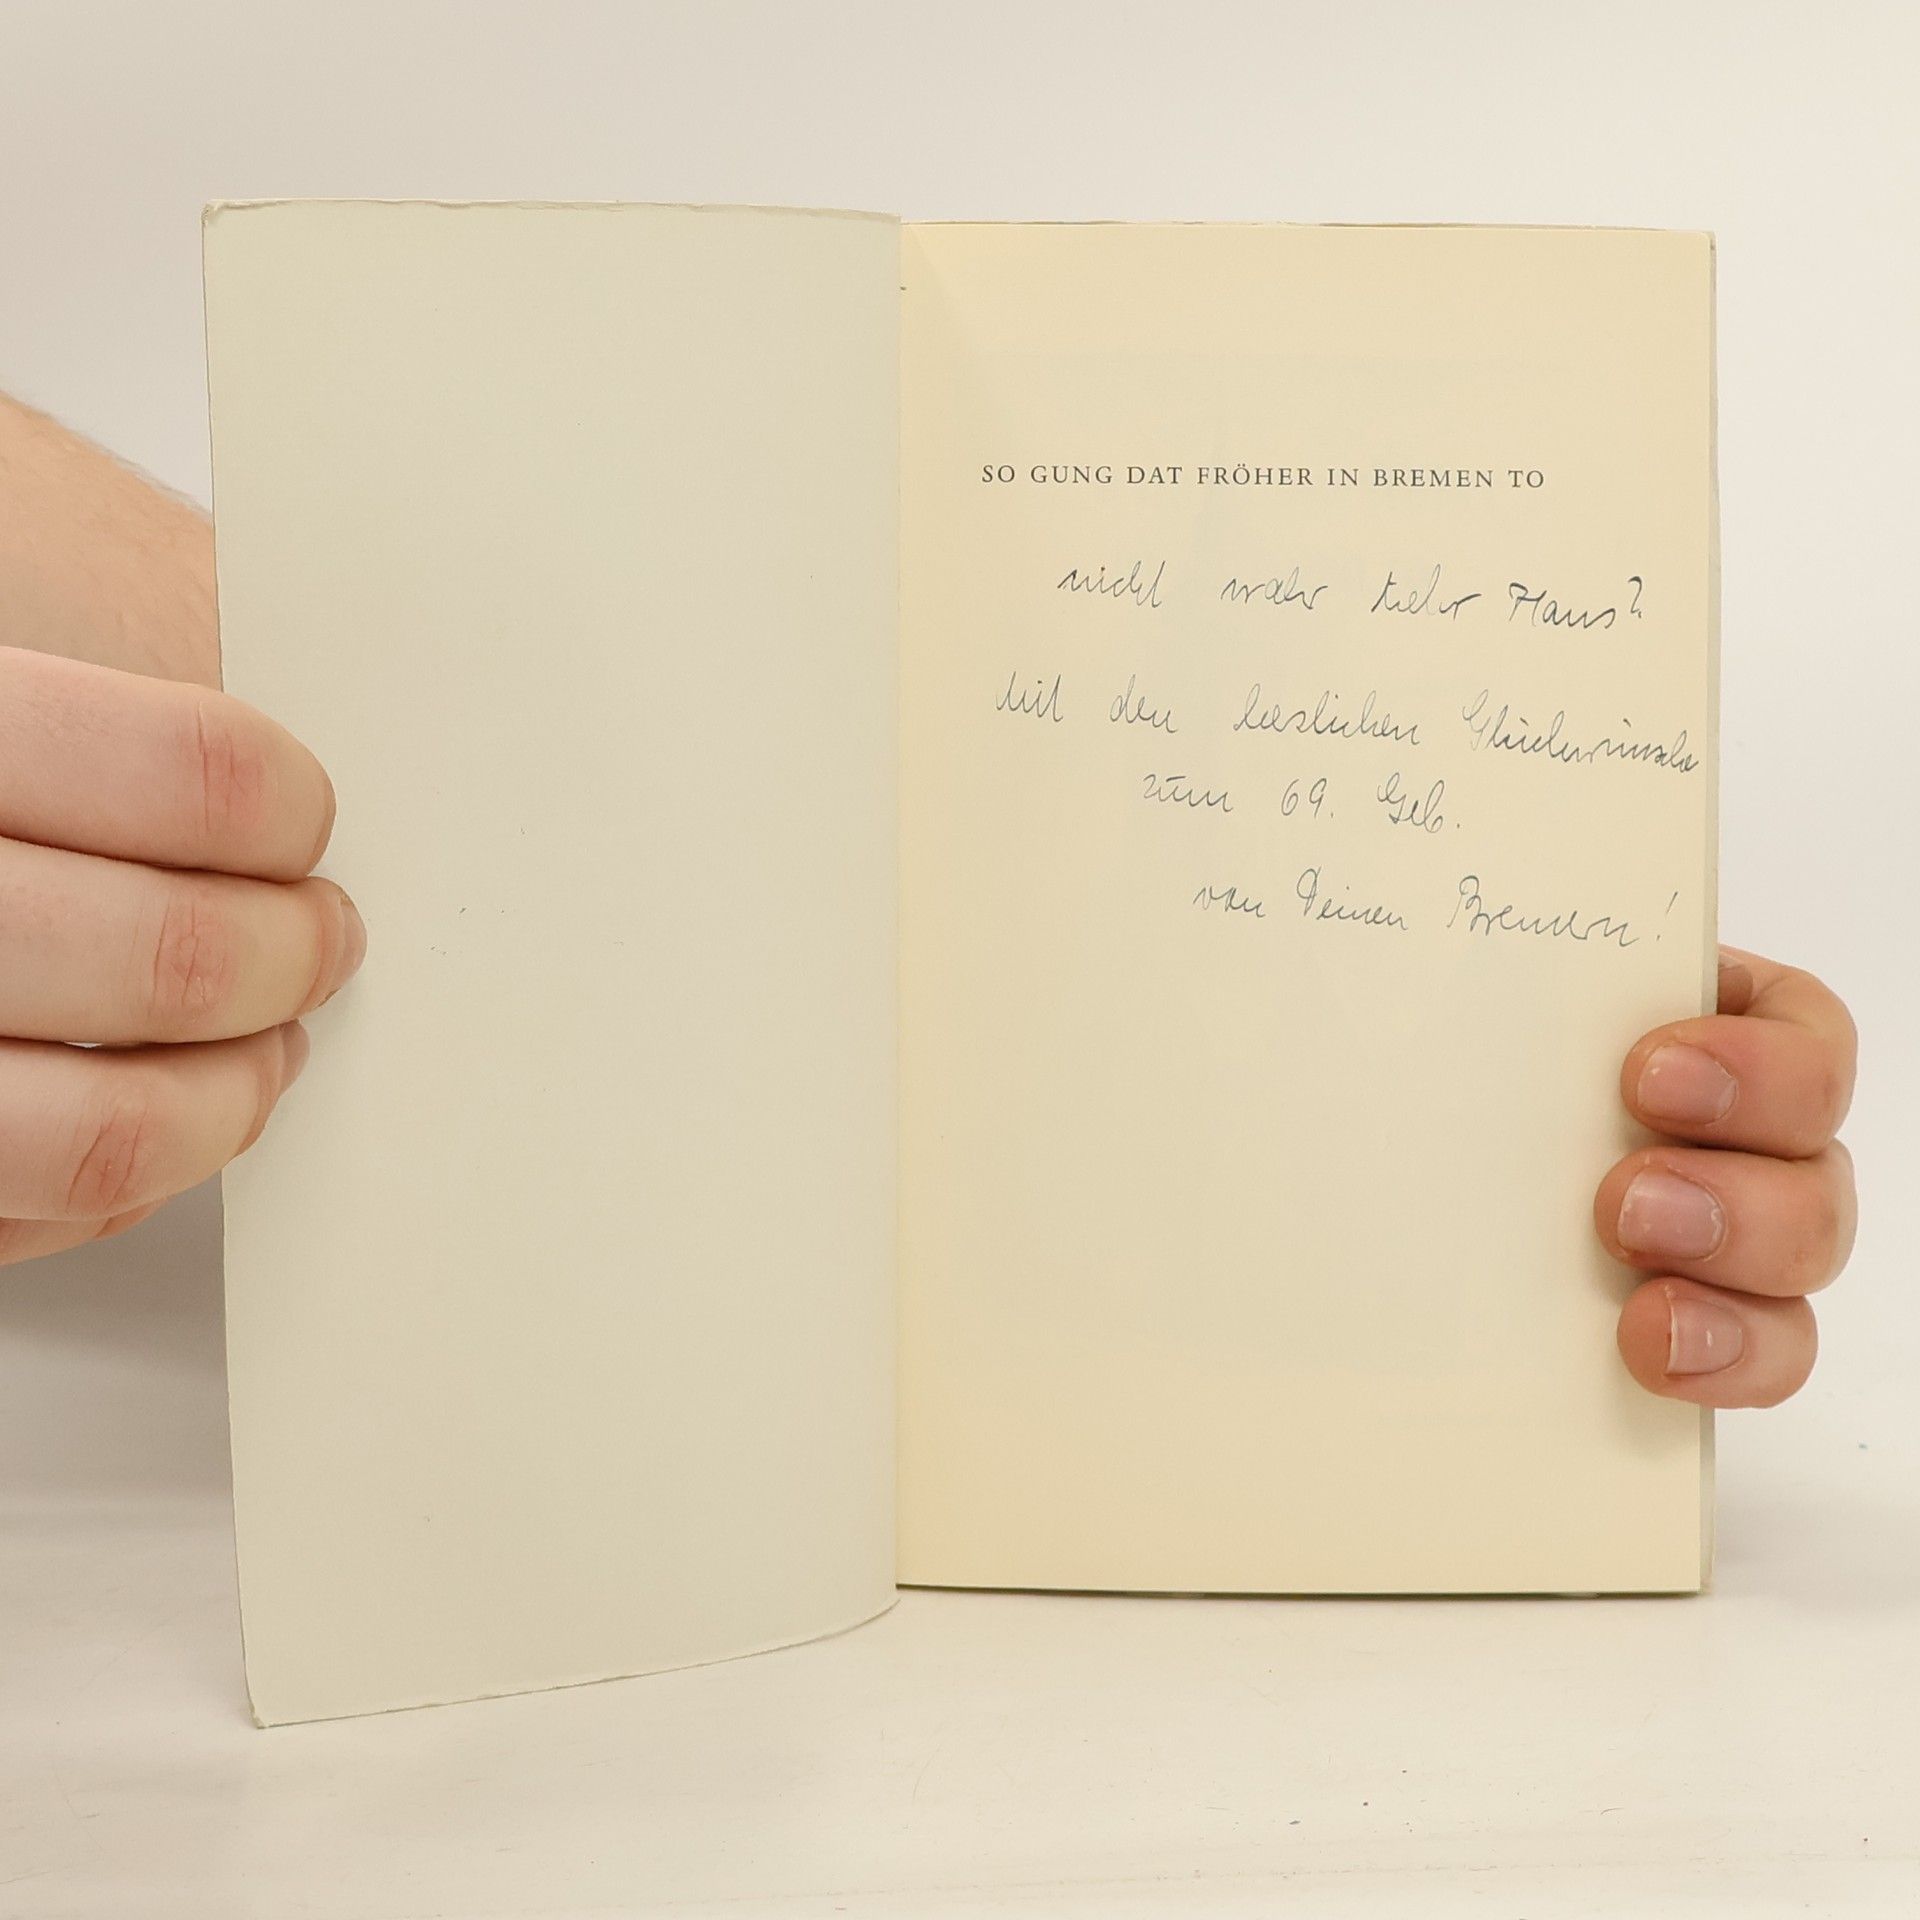 SO GUNG DAT FRÖHER IN BREMEN TO
nicht wahr lieber Hans?
Mit den herzlichen Glückwünsche
zum 69. Geb.
von Deinen Bremern!